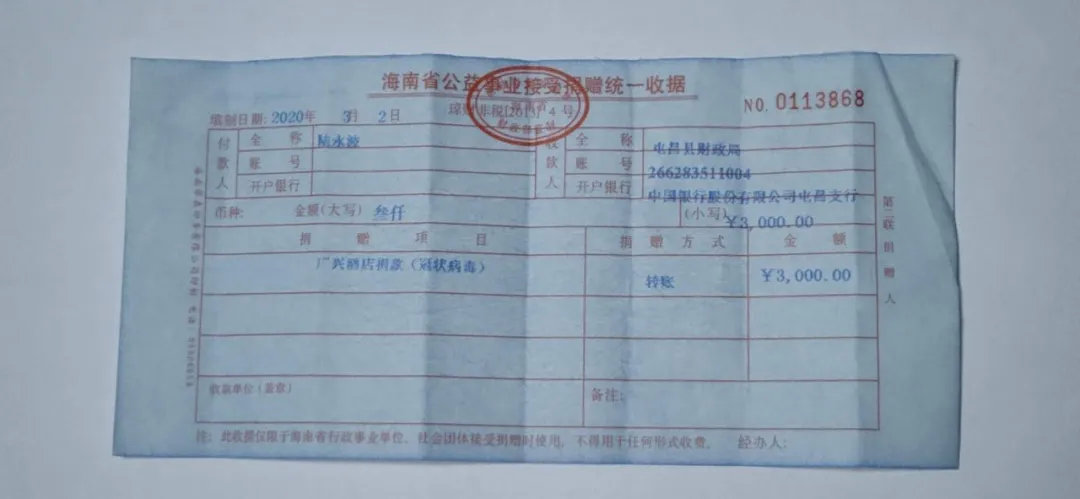 海南省公益事业接受捐赠统一收据
填制日期: 2020年 3月 2日
琼财非税[2013] 4 号
NO. 0113868
付款人
全 称 陆永波
账 号
开户银行
收款人
全 称 屯昌县财政局
账 号 266283511004
开户银行 中国银行股份有限公司屯昌支行
币种: 金额(大写) 叁仟 (小写) ¥3,000.00
捐 赠 项 目 捐 赠 方 式 金 额
广兴酒店捐款(冠状病毒) 转账 ¥3,000.00
第二联 捐赠人
收款单位(盖章) 备注:
注: 此收据仅限于海南省行政事业单位、社会团体接受捐赠时使用, 不得用于任何形式收费。 经办人: